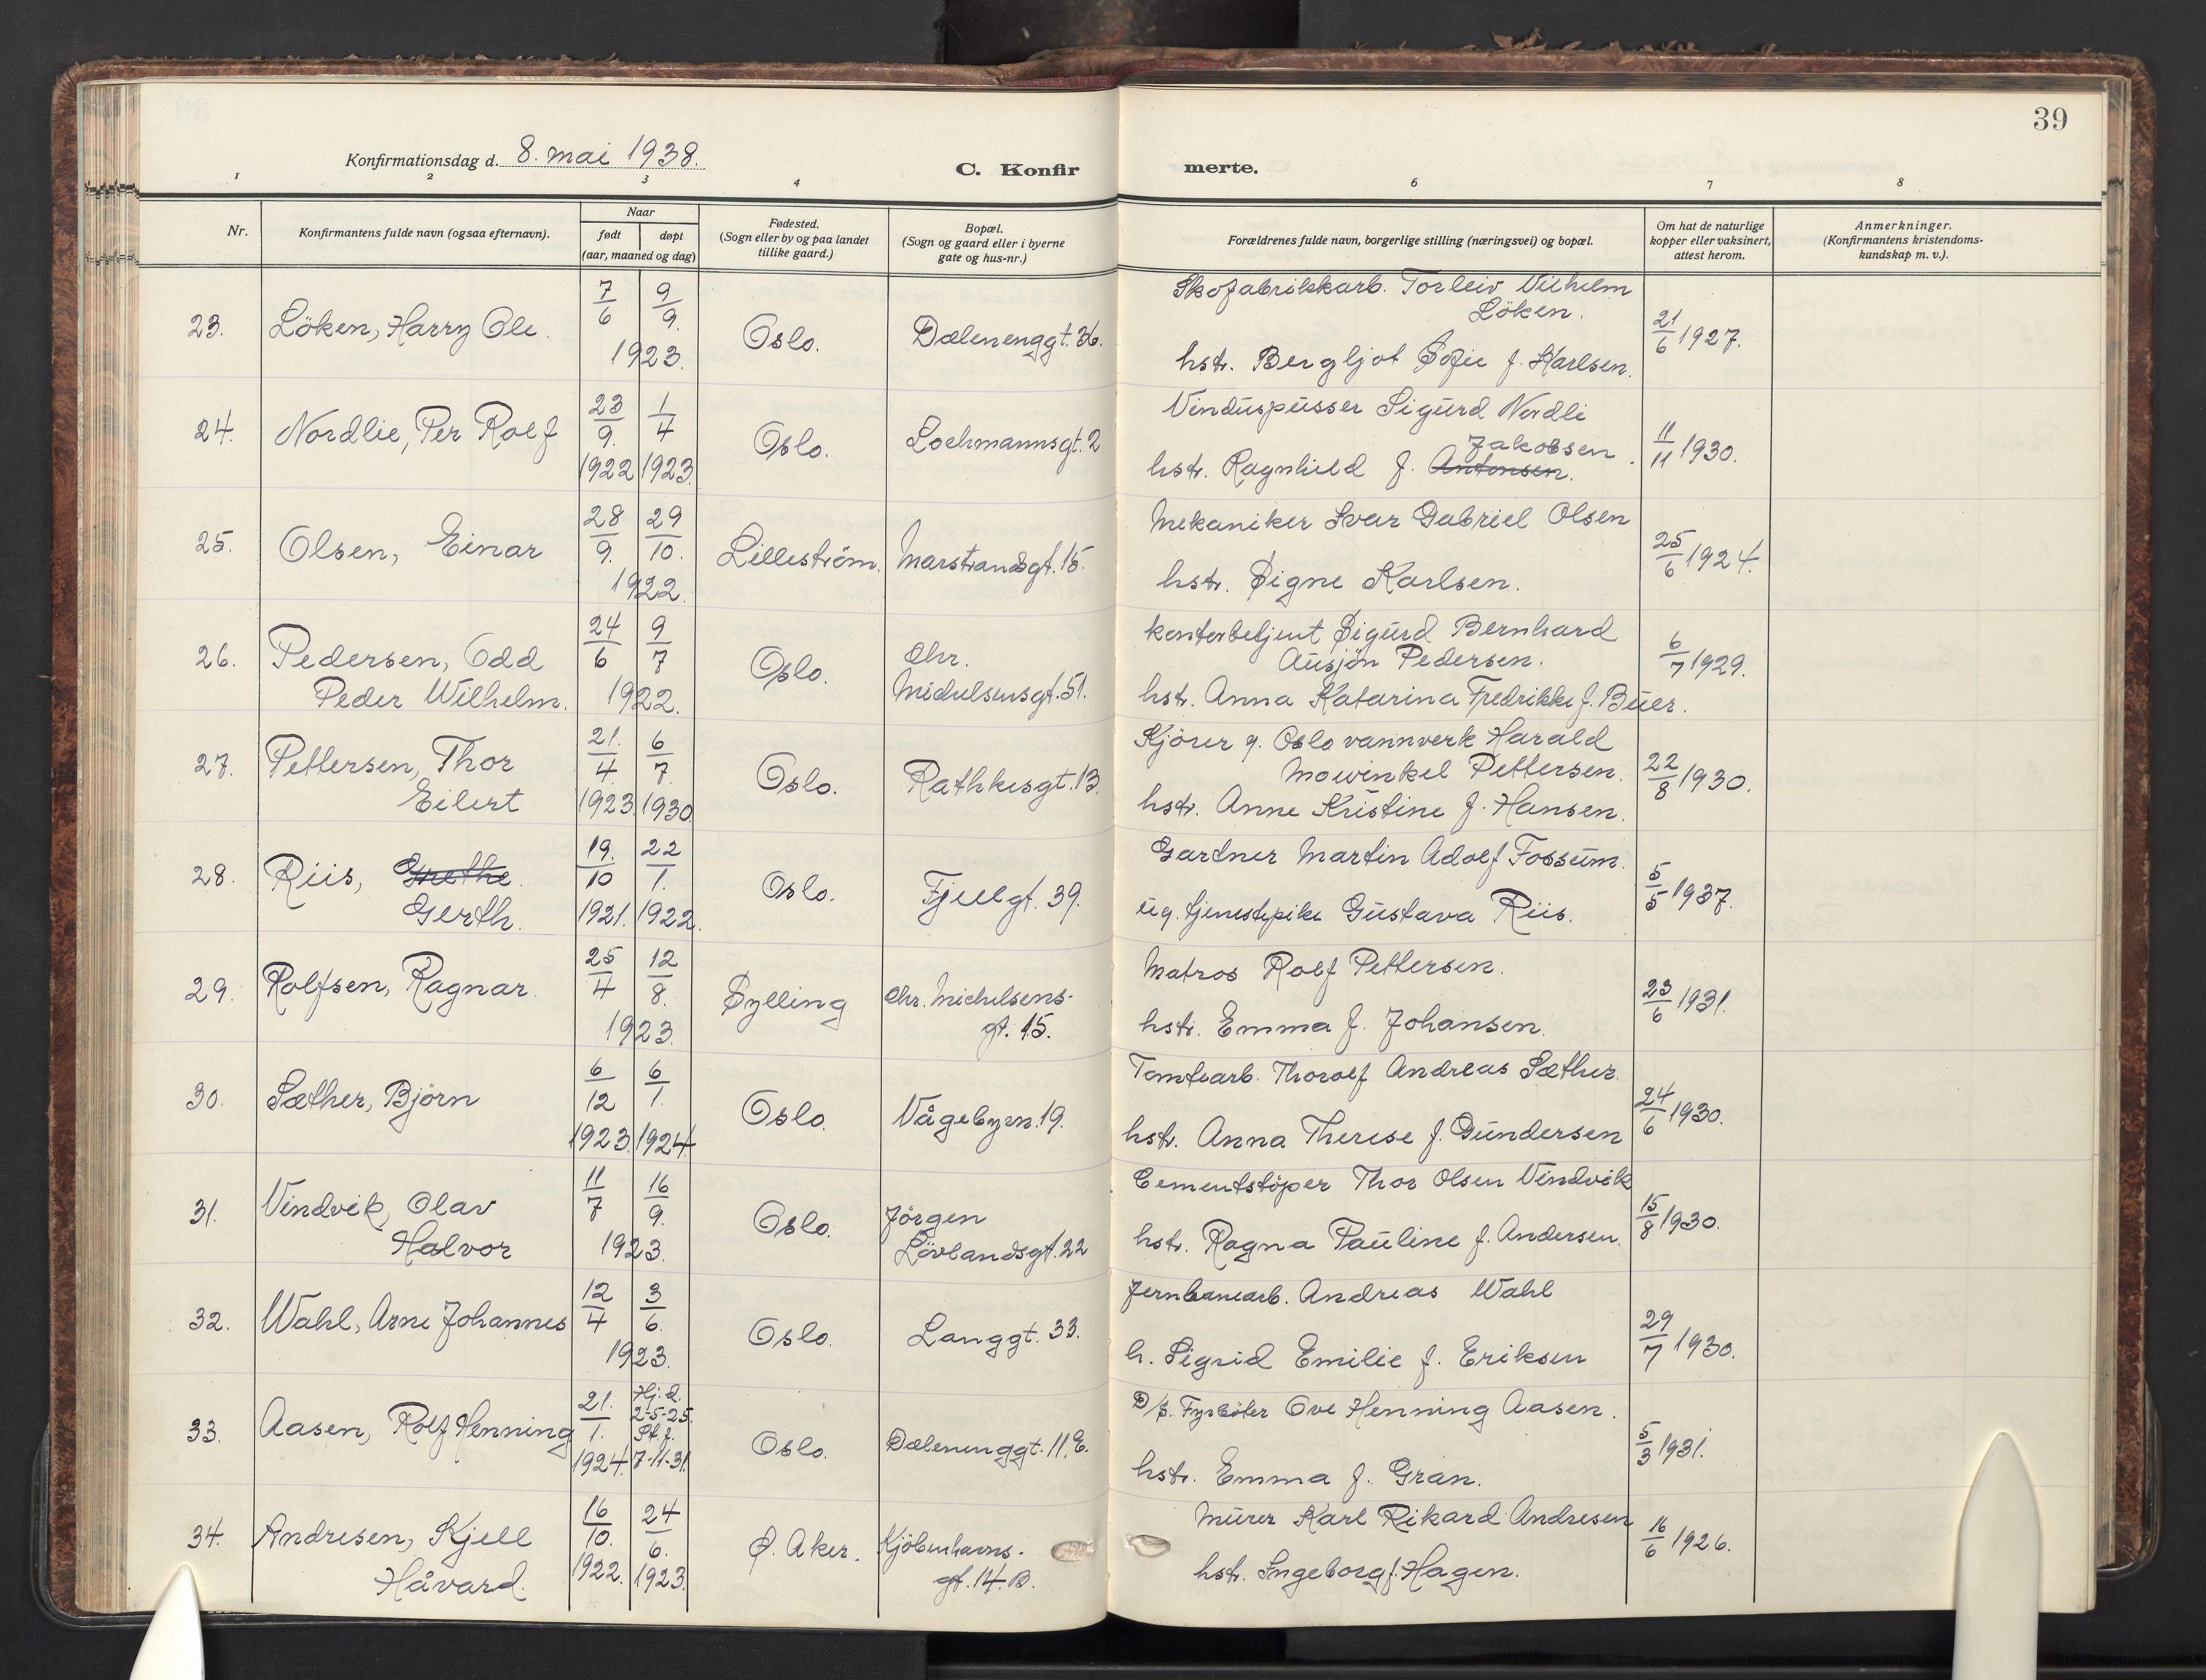 39
Konfirmationsdag d. 8. mai 1938.
C. Konfirmerte.
1 2 3 4 6 7 8
Nr.
Konfirmantens fulde navn (ogsaa efternavn).
Naar
født
døpt
(aar, maaned og dag)
Fødested.
(Sogn eller by og paa landet
tillike gaard.)
Bopæl.
(Sogn og gaard eller i byerne
gate og hus-nr.)
Forældrenes fulde navn, borgerlige stilling (næringsvei) og bopæl.
Om hat de naturlige
kopper eller vaksinert,
attest herom.
Anmerkninger.
(Konfirmantens kristendoms-
kundskap m. v.).
23. Löken, Harry Ole. 7/6 9/9. 1923. Oslo. Dælenenggt. 36.
Skofabrikkarb. Torleiv Vilhelm
Löken.
hstr. Bergljot Sofie f. Karlsen. 21/6 1927.
24. Nordlie, Per Rolf 23/9. 1922 1/4 1923. Oslo. Lochmannsgt. 2
Vinduspusser Sigurd Nordli
Jakobsen
hstr. Ragnhild f. Antonsen. 11/11 1930.
25. Olsen, Einar 28/9. 29/10. 1922. Lilleström. Marstrandsgt. 15.
Mekaniker Ivar Gabriel Olsen
hstr. Signe Karlsen. 25/6 1924.
26. Pedersen, Odd
Peder Wilhelm. 24/6 9/7 1922. Oslo. Chr.
Michelsensgt. 51.
kontorbetjent Sigurd Bernhard
Ausjön Pedersen.
hstr. Anna Katarina Fredrikke f. Buer. 6/7 1929.
27. Pettersen, Thor
Eilert 21./4 1923. 6/7. 1930. Oslo. Rathkesgt. 13.
Kjörer v. Oslo vannverk Harald
Mowinkel Pettersen.
hstr. Anne Kristine f. Hansen. 22/8 1930.
28. Riis, Grethe.
Gerth. 19./10 1921. 22/1. 1922. Oslo. Fjellgt. 39.
Gartner Martin Adolf Fossum.
ug. tjenestepike Gustava Riis. 5/5 1937.
29. Rolfsen, Ragnar. 25/4 12/8. 1923. Sylling Chr. Michelsens-
gt. 15.
Matros Rolf Pettersen.
hstr. Emma f. Johansen. 23/6 1931.
30. Sæther, Björn 6/12 1923. 6/1. 1924. Oslo. Vågebyrn. 19.
Tomtearb. Thorolf Andreas Sæther.
hstr. Anna Therese f. Gundersen 24/6 1930.
31. Vindvik, Olav
Halvor 11/7 16/9. 1923. Oslo. Jörgen
Lövlandsgt. 22
Cementstöper Thor Olsen Vindvik
hstr. Ragna Pauline f. Andersen. 15/8 1930.
32. Wahl, Arne Johannes 12/4 3/6. 1923. Oslo. Langgt. 33.
Jernbanearb. Andreas Wahl
h. Sigrid Emilie f. Eriksen 29/7 1930.
33. Aasen, Rolf Henning 21./1. 1924. Hj. d.
2-5-25.
St. f.
7-11-31. Oslo. Dælenenggt. 11. E.
D/s. Fyrböter Ove Henning Aasen.
hstr. Emma f. Gran. 5/3 1931.
34. Andresen, Kjell
Håvard. 16/10. 1922. 24/6. 1923. Ö. Aker. Kjöbenhavns-
gt. 14. B.
Murer Karl Rikard Andresen
hstr. Ingeborg f. Hagen. 16/6 1926.